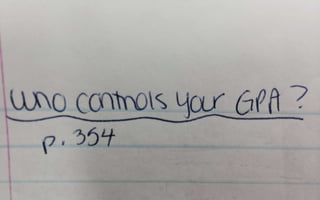 who controls your GPA?
p. 354